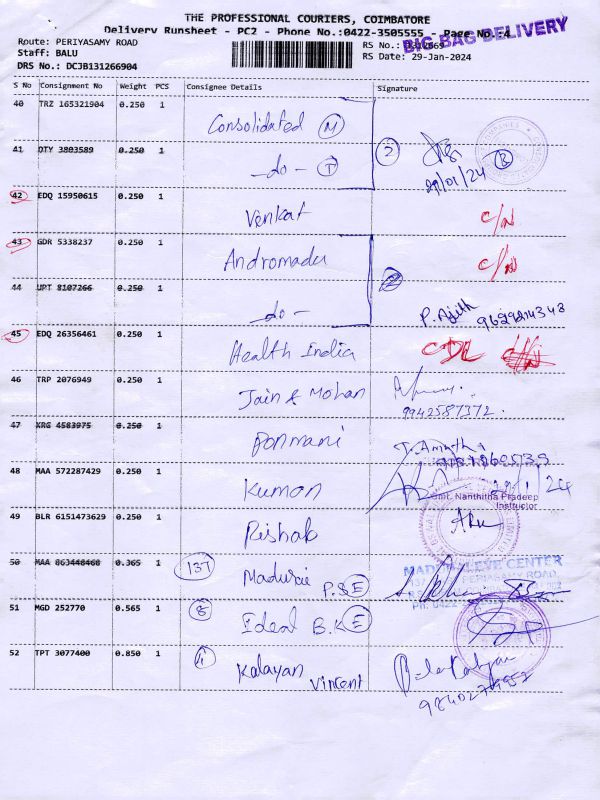 THE PROFESSIONAL COURIERS, COIMBATORE
Delivery Runsheet - PC2 - Phone No.:0422-3505555 - Page No.:4
BIG BAG DELIVERY
Route: PERIYASAMY ROAD
Staff: BALU
RS Date: 29-Jan-2024
DRS No.: DCJB131266904
S No Consignment No Weight PCS Consignee Details Signature
40 TRZ 165321904 0.250 1 Consolidated M
41 DTY 3803589 0.250 1 -do- T 2 29/01/24
42 EDQ 15950615 0.250 1 Venkat C/N
43 GDR 5338237 0.250 1 Andromadu C/N
44 UPT 8107266 0.250 1 -do- 2 P. Ajith
45 EDQ 26356461 0.250 1 Health India CDL
46 TRP 2076949 0.250 1 Jain & Mohan 9942587372.
47 KRG 4583975 0.250 1 Ponmani
48 MAA 572287429 0.250 1 Kumon
Smt. Nanthitha Pradeep
Instructor
49 BLR 6151473629 0.250 1 Rishab
50 MAA 863448468 0.365 1 137 Madurai P.S E
PERIASAMY ROAD,
51 MGD 252770 0.565 1 8 Ideal B.K E
52 TPT 3077400 0.850 1 4 Kalayan Vincent